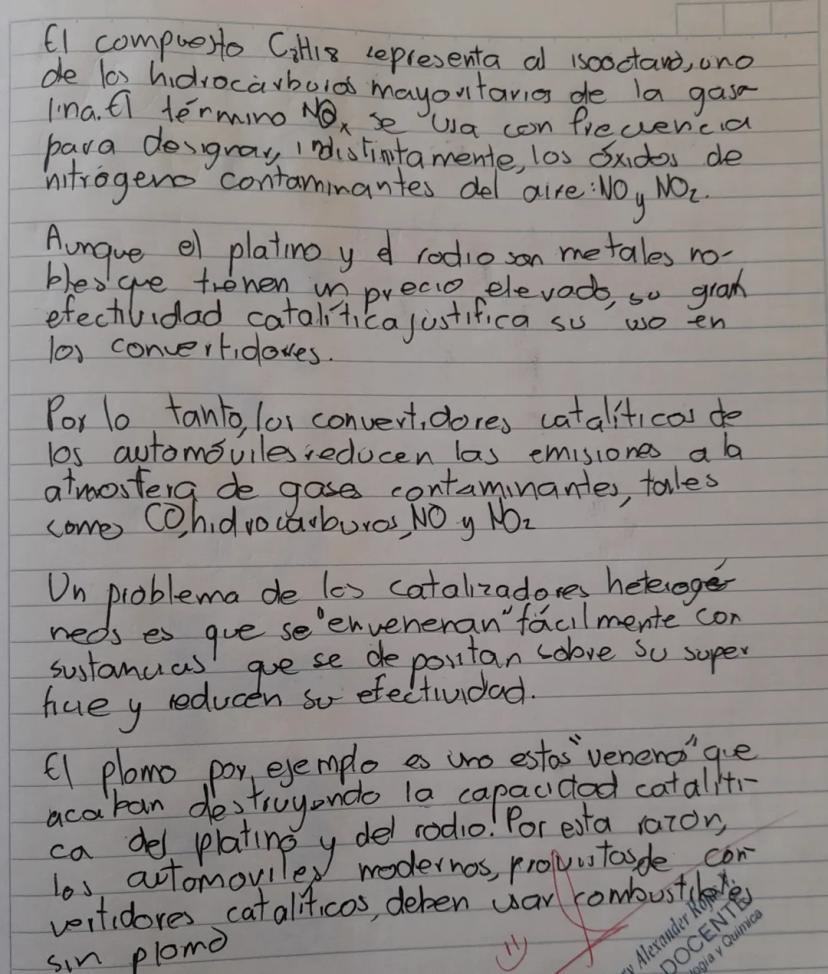 El compuesto C8H18 representa al isooctano, uno
de los hidrocarburos mayoritarios de la gaso
lina. El término NOx se usa con frecuencia
para designar, indistintamente, los óxidos de
nitrógeno contaminantes del aire: NO y NO2.
Aunque el platino y el rodio son metales no-
bles que tienen un precio elevado, su gran
efectividad catalítica justifica su uso en
los convertidores.
Por lo tanto, los convertidores catalíticos de
los automóviles reducen las emisiones a la
atmosfera de gases contaminantes, tales
como CO, hidrocarburos, NO y NO2
Un problema de los catalizadores heterogé
neos es que se "envenenan" fácilmente con
sustancias que se depositan sobre su super
ficie y reducen su efectividad.
El plomo por ejemplo es uno estos "veneno" que
acaban destruyendo la capacidad cataliti-
ca del platino y del rodio. Por esta razon,
los automoviles modernos, provistos de con
vertidores catalíticos, deben usar combustibles
sin plomo
Alexander Rojas
DOCENTE
y Química